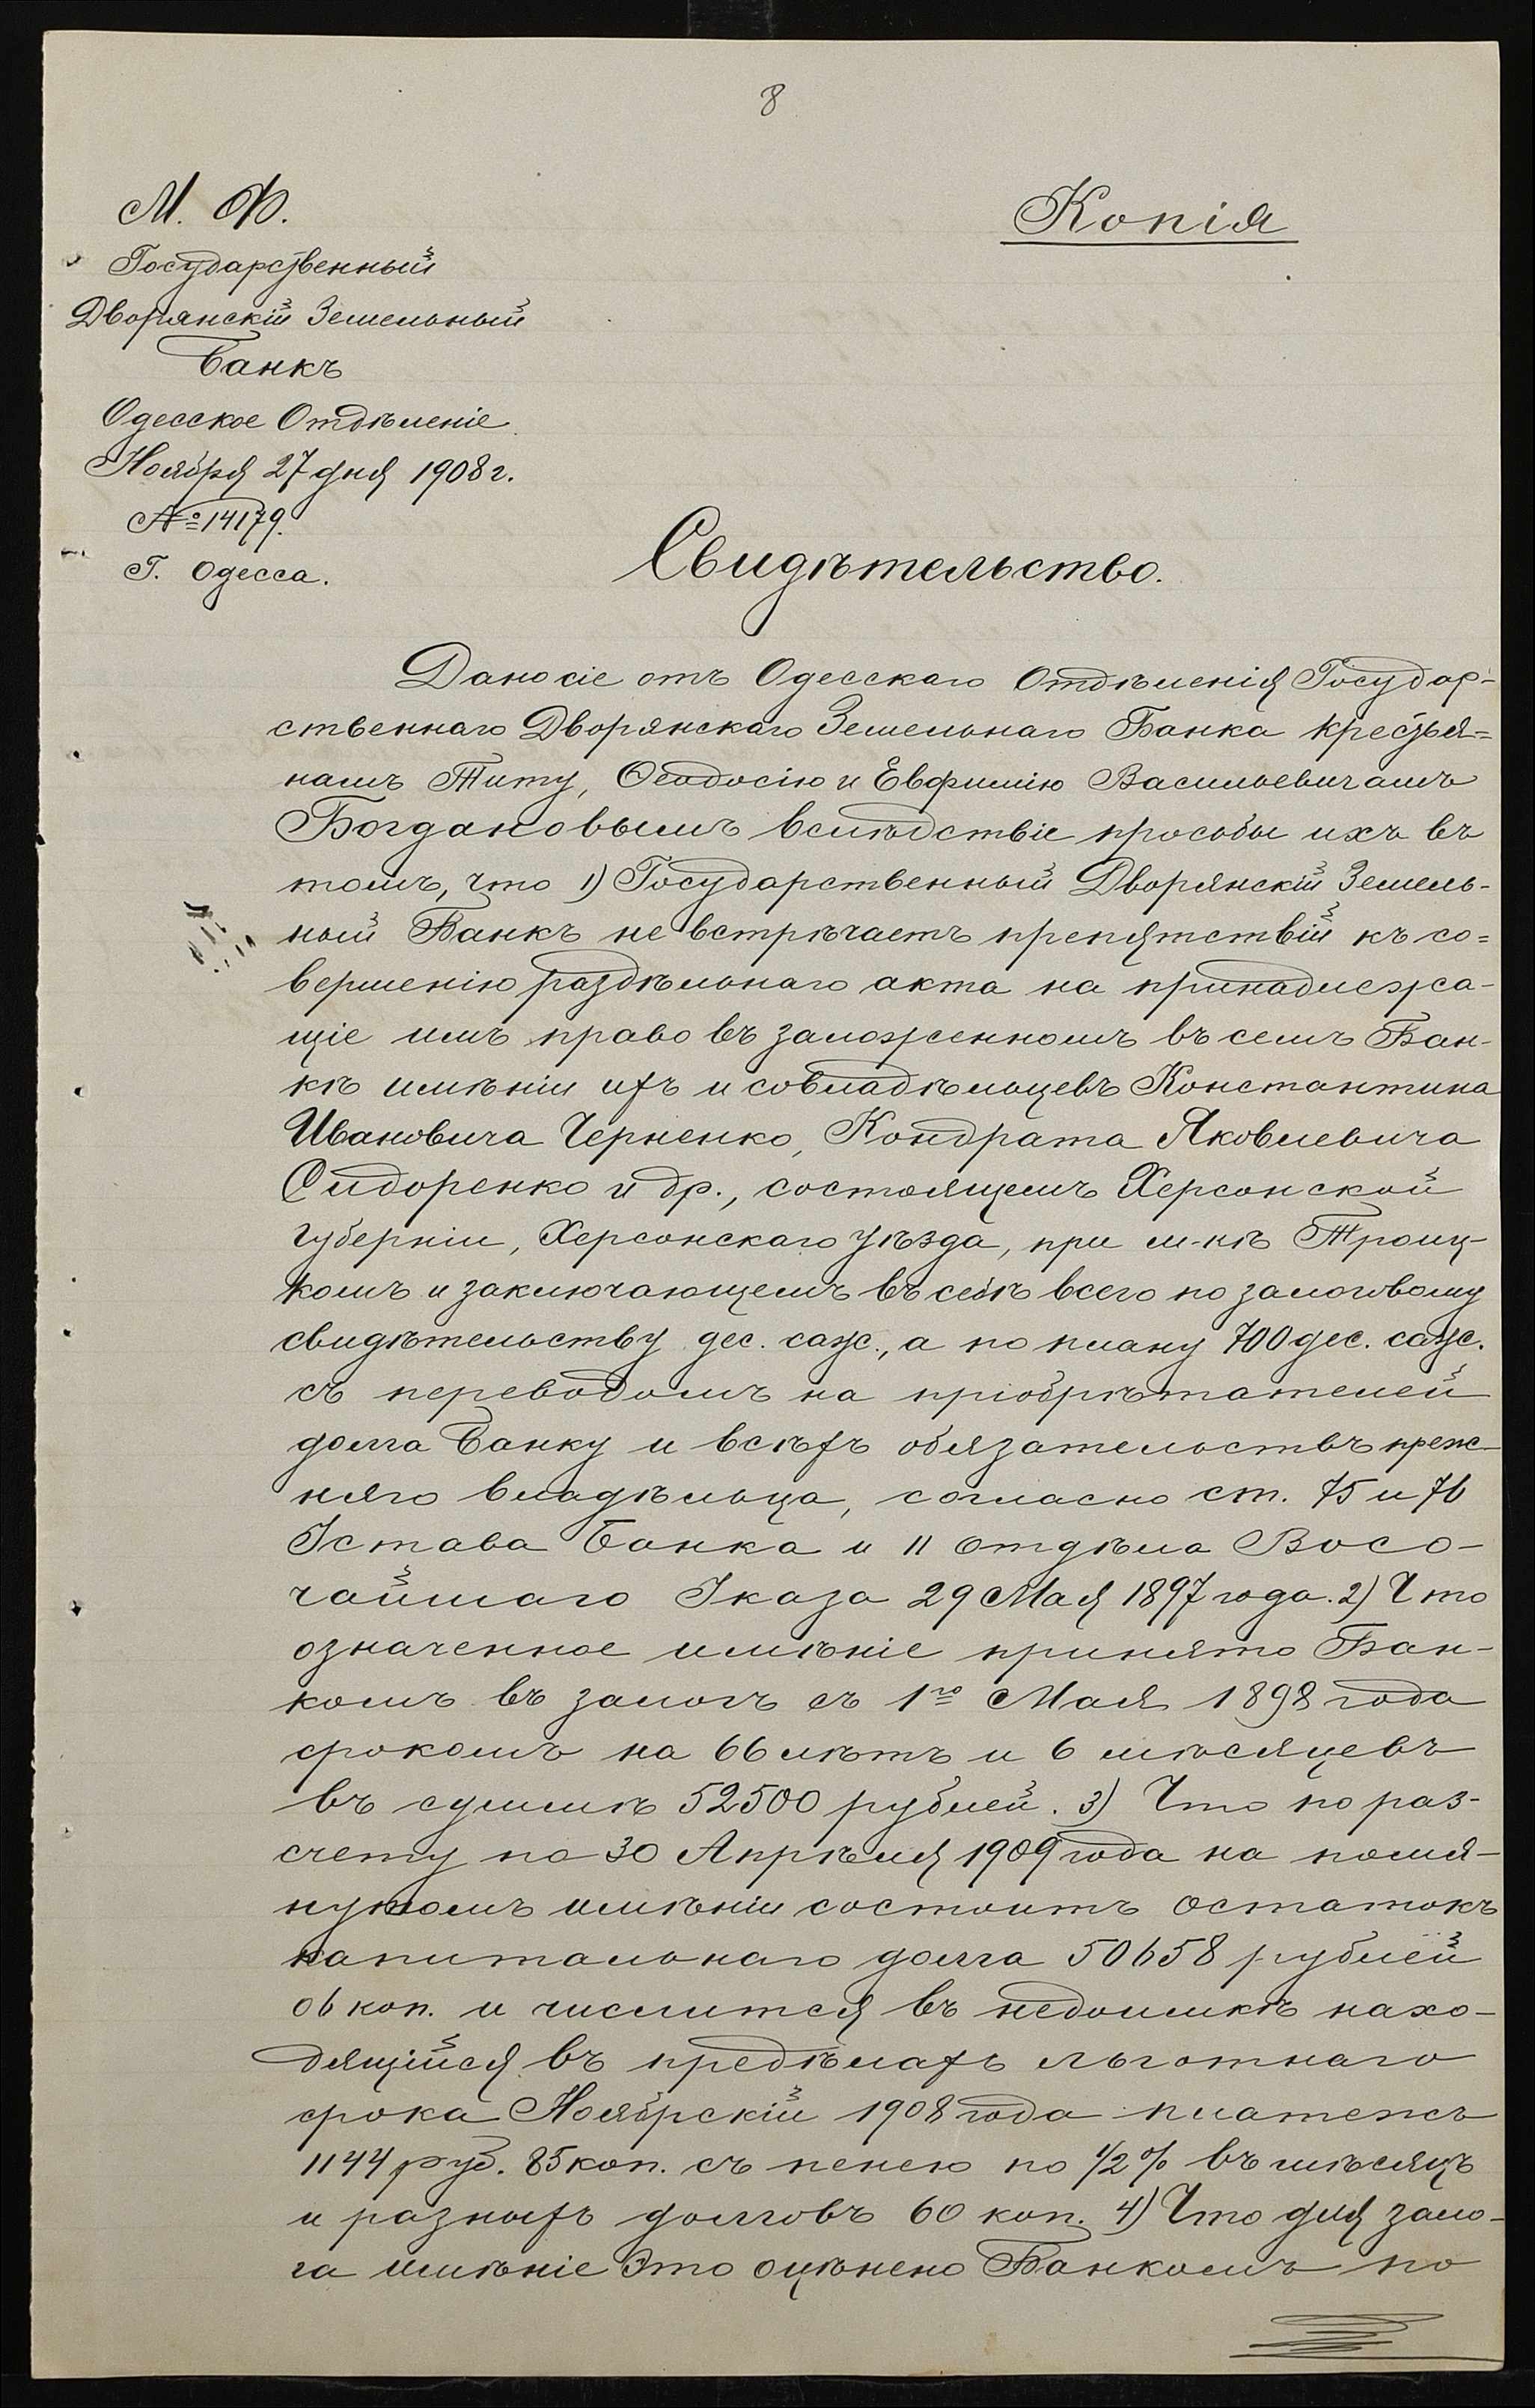 8
М. Ф.
Государственный
Дворянскій Земельный
Банкъ
Одесское Отдѣленіе
Ноября 27 дня 1908 г.
№ 14179.
Г. Одесса.
Копія
Свидѣтельство.
Дано сіе отъ Одесскаго Отдѣленія Государ-
ственнаго Дворянскаго Земельнаго Банка кресзья=
намъ Титу, Ѳеодосію и Евфимію Васильевичамъ
Богдановымъ вслѣдствіе просьбы ихъ въ
томъ, что 1) Государственный Дворянскій Земель-
ный Банкъ не встрѣчаетъ препятствій къ со=
вершенію раздѣльнаго акта на принадлежа-
щіе имъ право въ заложенномъ въ семъ Бан-
кѣ имѣніи ихъ и совладѣльцевъ Константина
Ивановича Черненко, Кондрата Яковлевича
Сидоренко и др., состоящемъ Херсонской
губерніи, Херсонскаго уѣзда, при м-кѣ Троиц-
комъ и заключающемъ въ себѣ всего по залоговому
свидѣтельству дес. саж., а по плану 700 дес. саж.
съ переводомъ на пріобрѣтателей
долга Банку и всѣхъ обязательствъ преж-
няго владѣльца, согласно ст. 75 и 76
Устава Банка и II отдѣла Высо-
чайшаго Указа 29 Мая 1897 года. 2) Что
означенное имѣніе принято Бан-
комъ въ залогъ съ 1го Мая 1898 года
срокомъ на 66 лѣтъ и 6 мѣсяцевъ
въ суммѣ 52500 рублей. 3) Что по раз-
счету по 30 Апрѣля 1909 года на помя-
нутомъ имѣніи состоитъ остатокъ
капитальнаго долга 50658 рублей
06 коп. и числится въ недоимкѣ нахо-
дящійся въ предѣлахъ льготнаго
срока Ноябрскій 1908 года платежъ
1144 руб. 85 коп. съ пенею по 1/2 % въ мѣсяцъ
и разныхъ долговъ 60 коп. 4) Что для зало-
га имѣніе это оцѣнено Банкомъ по